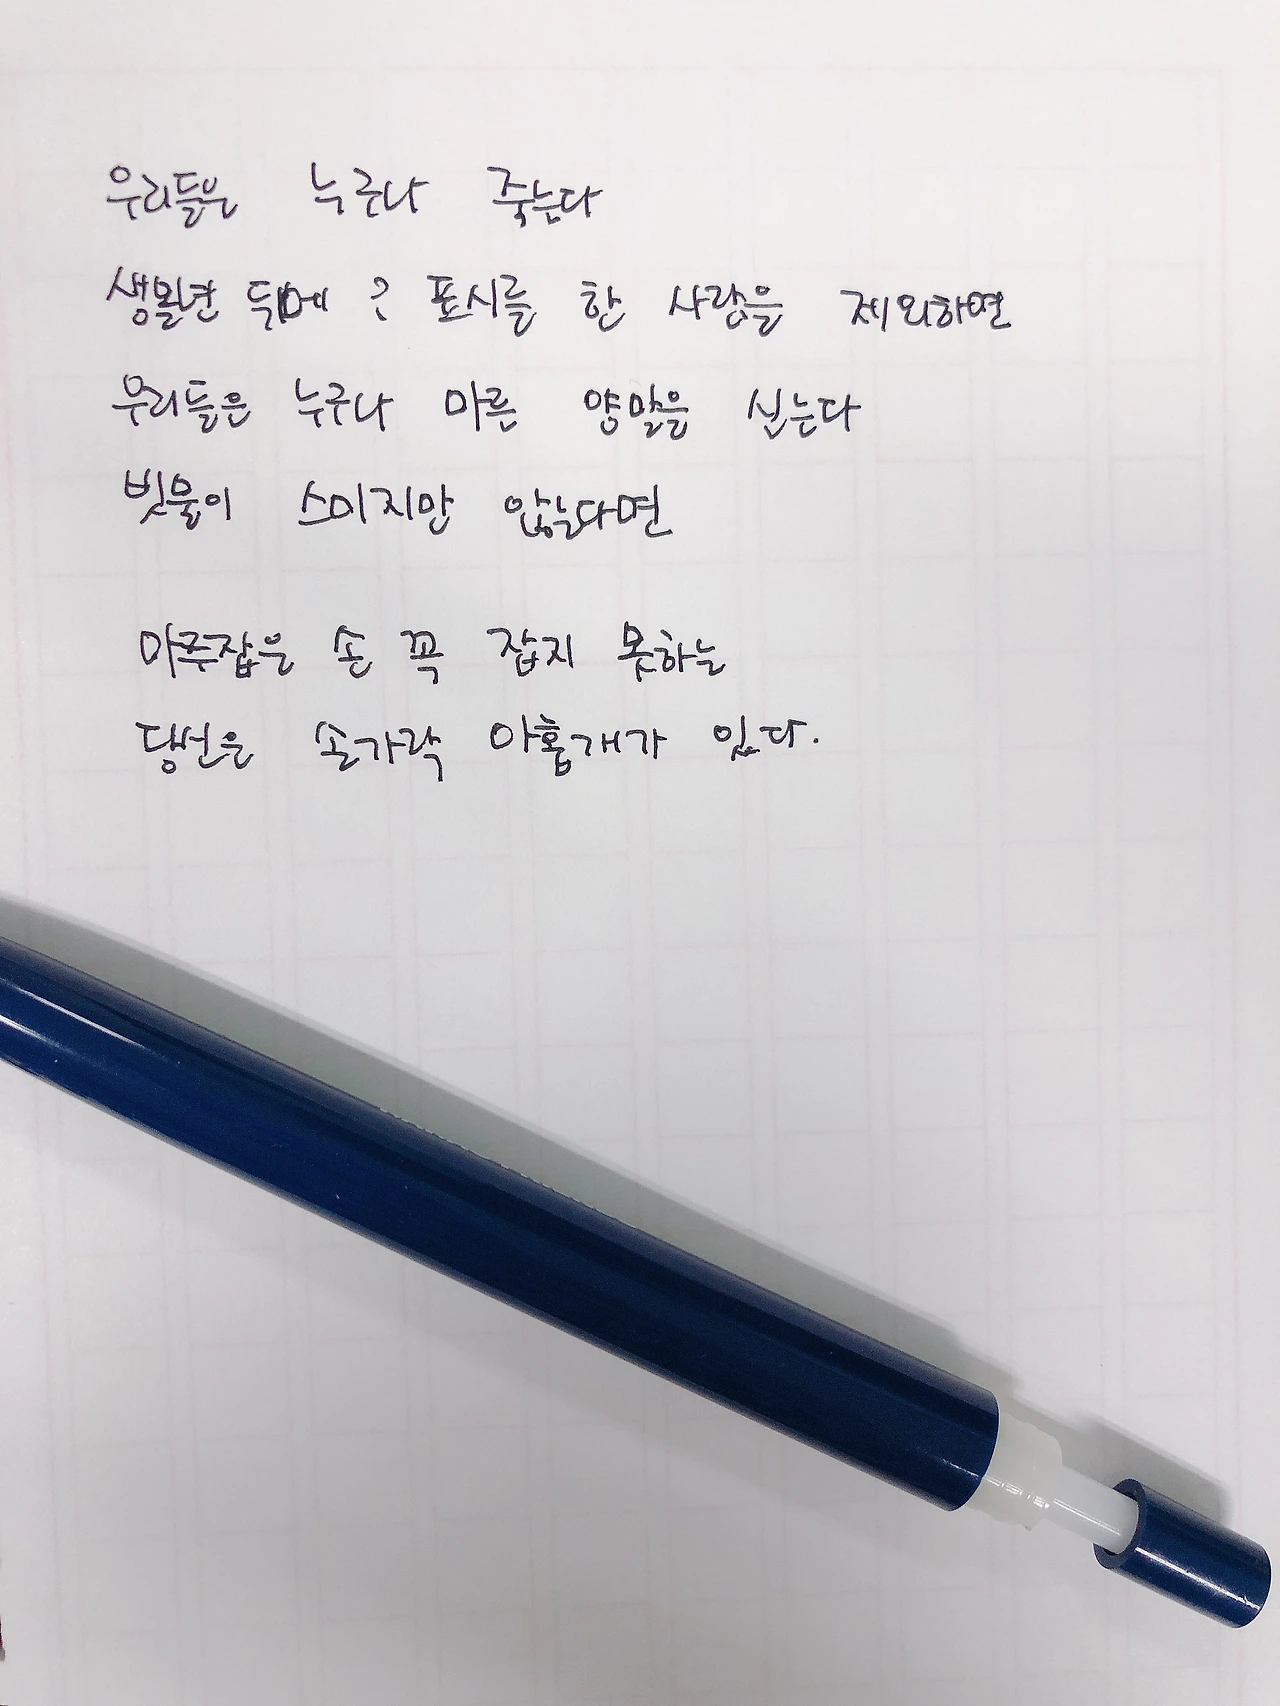 우리들은 누구나 죽는다
생몰년 뒤에 ? 표시를 한 사람을 제외하면
우리들은 누구나 마른 양말을 신는다
빗물이 스미지만 않는다면
마주잡은 손 꼭 잡지 못하는
당신은 손가락 아홉개가 있다.